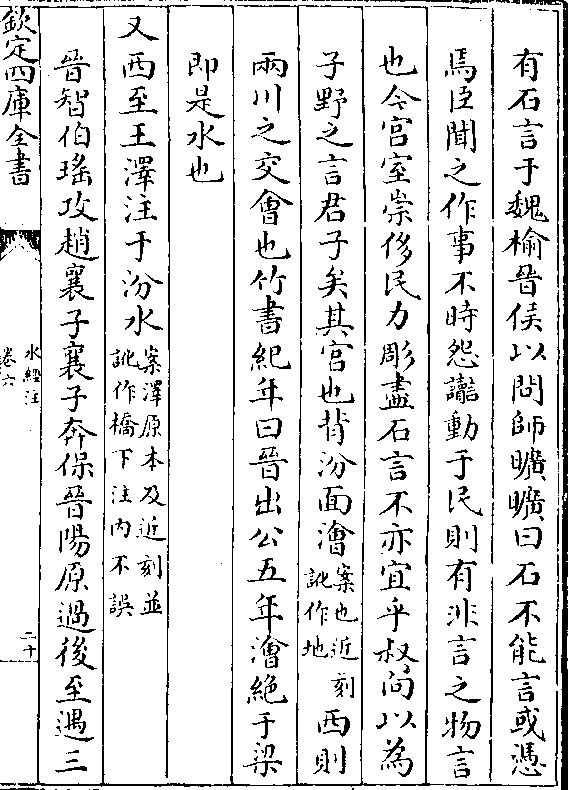 有石言于魏榆晉侯以問師曠曠曰石不能言或憑
焉臣聞之作事不時怨讟動于民則有非言之物言
也今宫室崇侈民力彫盡石言不亦宜乎叔向以為
子野之言君子矣其宫也背汾面澮案也近刻訛作地西則
兩川之交會也竹書紀年曰晉出公五年澮絶于梁
即是水也
又西至王澤注于汾水案澤原本及近刻並訛作橋下注内不誤
晉智伯瑤攻趙襄子襄子奔保晉陽原過後至遇三
欽定四庫全書
水經注
卷六
二十